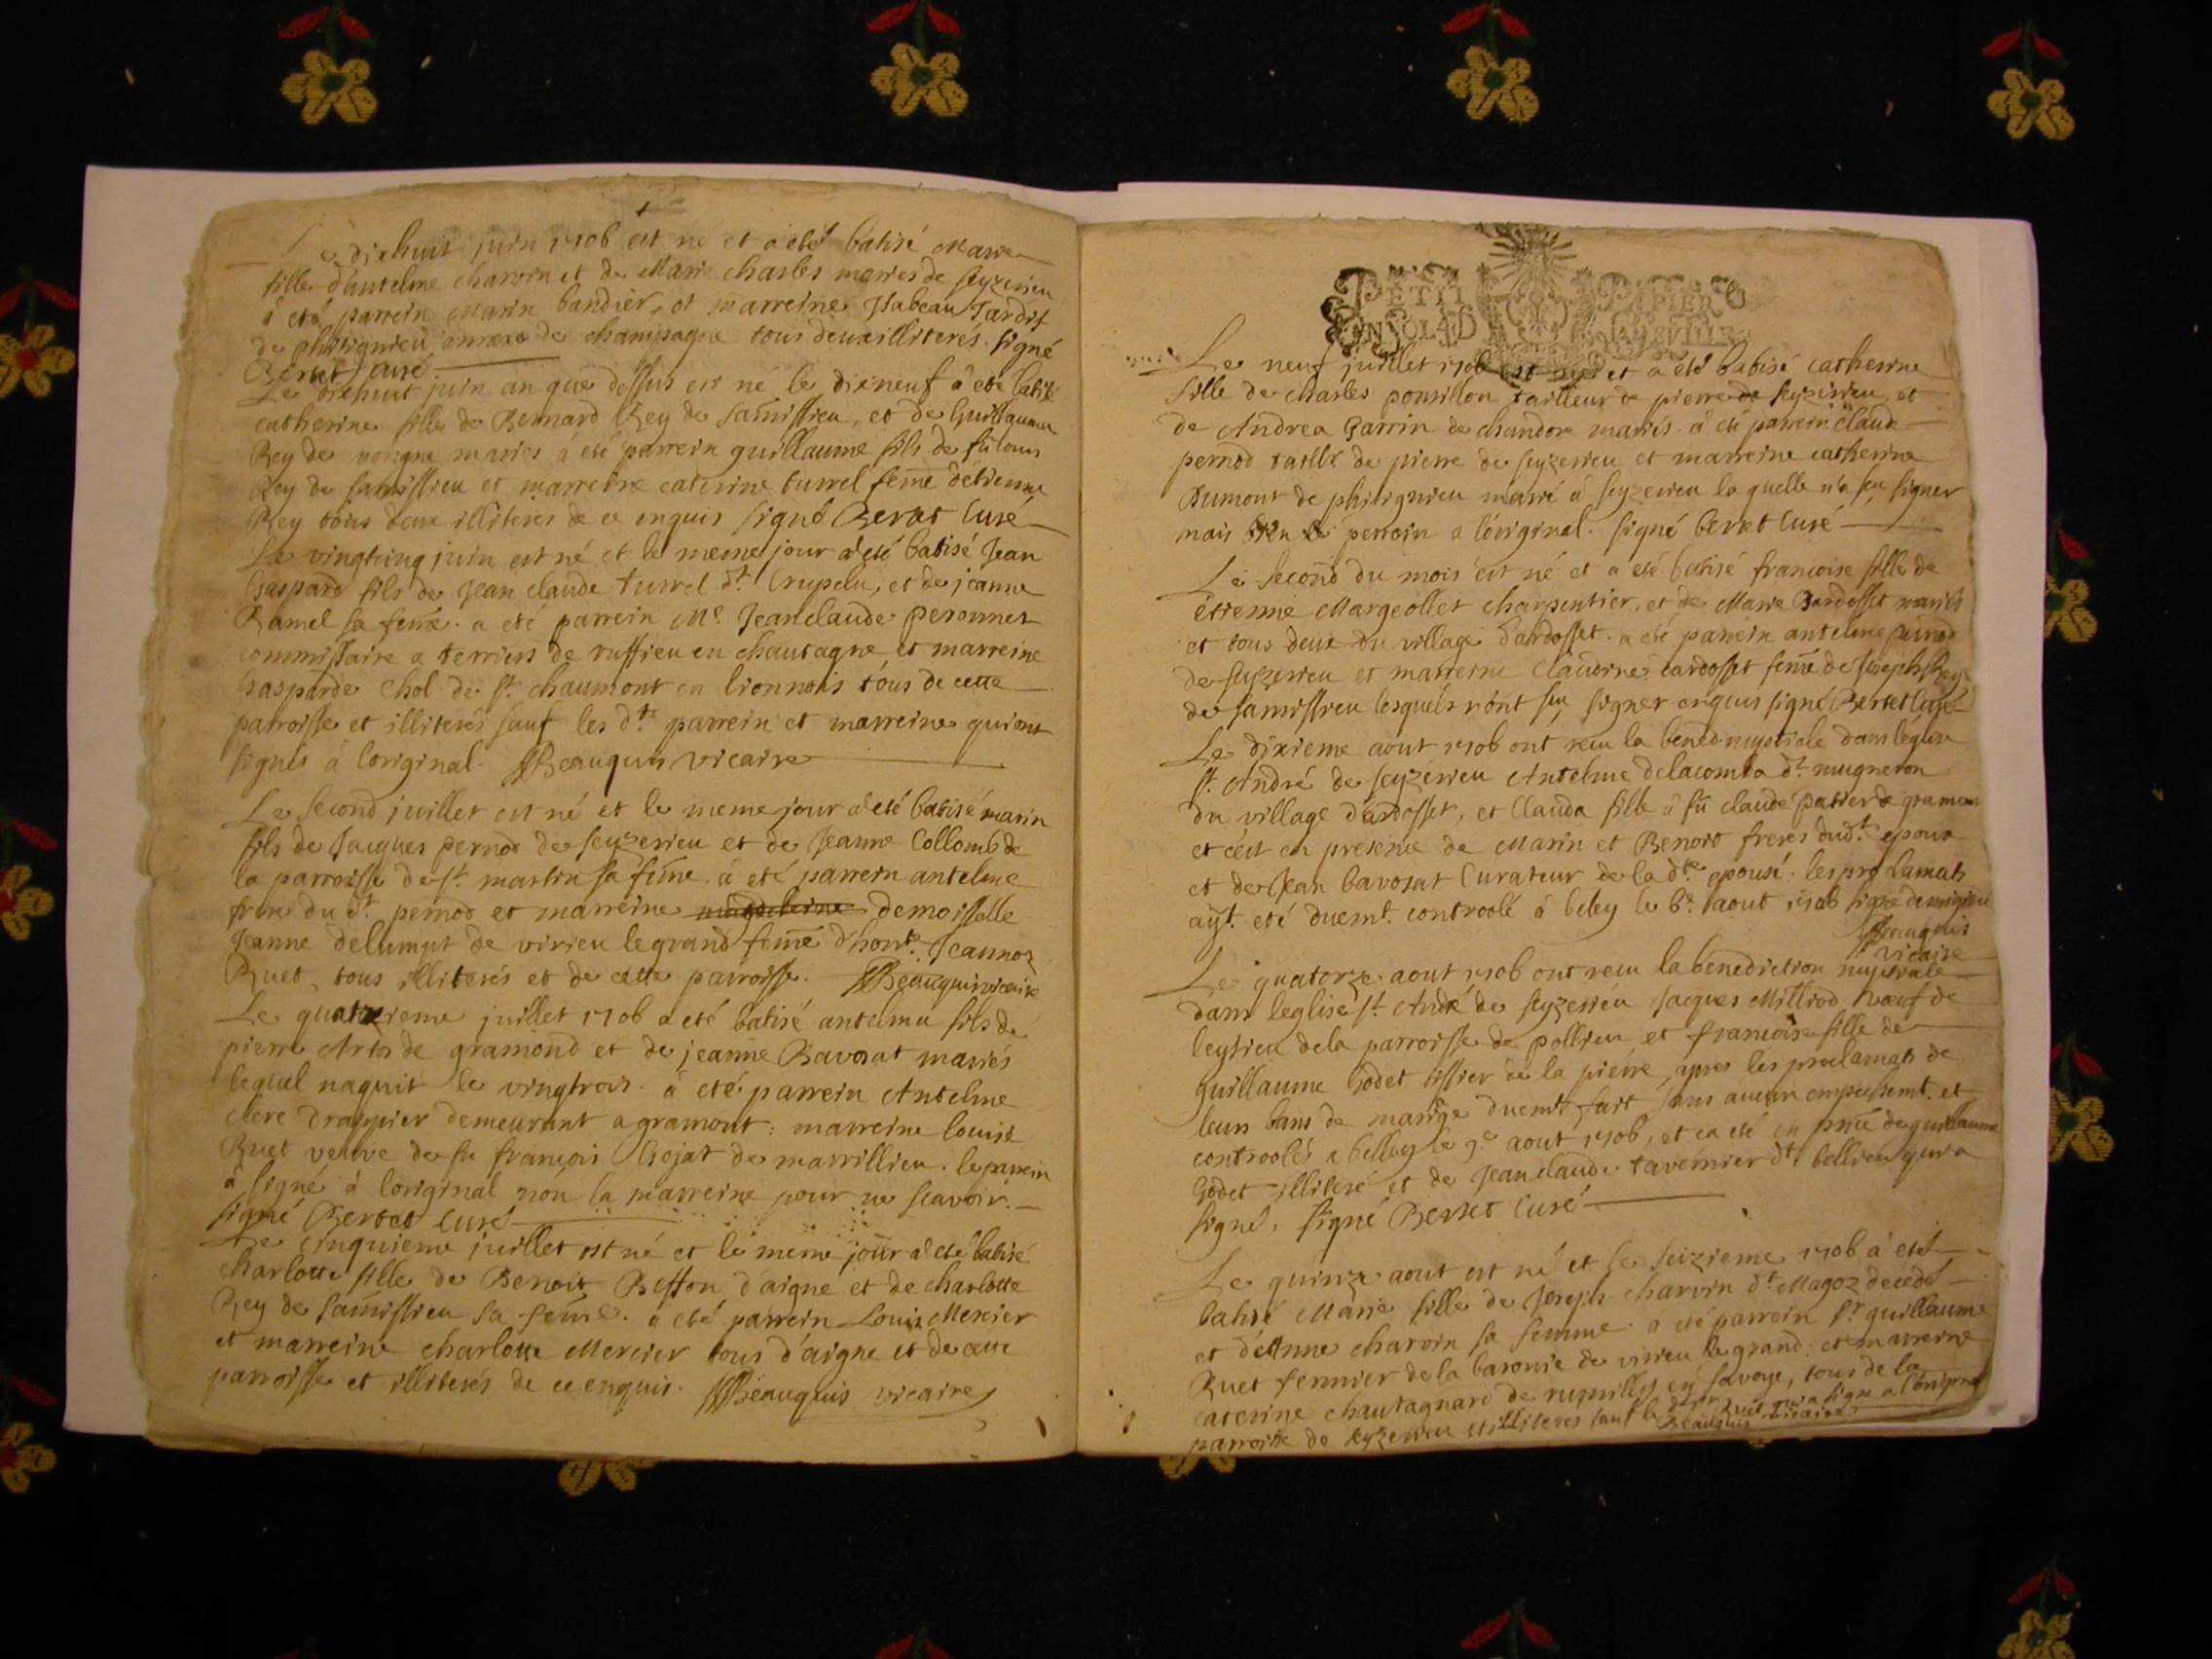 Le dixhuit juin 1706 est né et a eté batisé Marie
fille d'antelme charvin et de Marie charles mariés de seyzerieu
a eté parrein Marin bandier, et marreine Isabeau Tardif
de phitignieu annexe de champagne tous deux illiterés. signé
Bertet curé
Le dixhuit juin an que dessus est né le dixneuf a eté batisé
catherine fille de Bernard Rey de samissieu, et de Guillauma
Rey de vongne mariés a eté parrein guillaume fils de fû louis
Rey de samissieu et marreine caterine turrel feme d'etienne
Rey tous deux illiterés de ce enquis signé Bertet Curé
Le vingtcinq juin est né et le meme jour a eté batisé Jean
Gaspard fils de Jean claude turrel dt. Crupelu, et de jeanne
Ramel sa feme. a eté parrein Me Jeanclaude peronnet
commissaire a terriers de ruffieu en chautagne, et marreine
Gasparde Chol de st. chaumont en lionnois tous de cette
parroisse et illiterés sauf les dts. parrein et marreine qui ont
signés à l'original. Beauquis vicaire
Le second juillet est né et le meme jour a eté batisé marin
fils de Jacques pernod de seyzerieu et de Jeanne Collomb de
la parroisse de st. martin sa feme. a eté parrein antelme
frere du dt. pernod et marreine magdeleine demoiselle
Jeanne delumpt de virieu le grand feme d'hon.te Jeannot
Ruet, tous illiterés et de cette parroisse. Beauquis vicaire
Le quatrieme juillet 1706 a eté batisé antelme fils de
pierre Arta de gramond et de jeanne Bavosat mariés
lequel naquit le vingtrois. a eté parrein Antelme
clere drappier demeurant a gramont: marreine louise
Ruet veuve de fu françois Gojat de marrillieu. le parrein
a signé à l'original non la marreine pour ne scavoir.
signé Bertet Curé
Le cinquieme juillet est né et le meme jour a eté batisé
charlotte fille de Benoit Besson d'aigne et de charlotte
Rey de samissieu sa feme. a eté parrein Louis Mercier
et marreine charlotte Mercier tous d'aigne et de cette
parroisse et illiterés de ce enquis. Beauquis vicaire
PETIT PAPIER
Le neuf juillet 1706 est né et a eté batisé catherine
fille de charles ponsillon tailleur de pierre de seyzerieu et
de Andrea Garrin de chandore mariés. a eté parrein claude
pernod taillr. de pierre de seyzerieu et marreine catherine
Dumont de phitignieu marié à seyzerieu la quelle n'a seu signer
mais bien le perrein a l'original. signé bertet Curé
Le second du mois est né et a eté batisé francoise fille de
etienne Margeollet charpentier, et de Marie Dardosset mariés
et tous deux du village d'ardosset. a eté parrein antelme pernod
de seyzerieu et marreine Claudine dardosset feme de Joseph Rey
de samissieu lesquels n'ont seu signer enquis signé Bertet Curé
Le dixieme aout 1706 ont receu la bened. nuptiale dans léglise
st. André de seyzerieu Antelme delacomba dt. mugneron
du village d'ardosset, et Clauda fille à fû claude patier de gramon
et c'est en presence de Marin et Benoit freres dudt. epoux
et de Jean bavosat Curateur de la dte. epouse. les proclamats
ayt. eté duemt. controolé à beley le 6e. aout 1706
Beauquis
vicaire
Le quatorze aout 1706 ont receu la benediction nuptiale
dans leglise st. André de seyzerieu Jacques Milliod vœuf de
leyrieu de la parroisse de pollieu et francoise fille de
guillaume Godet tissier de la pierre, apres les proclamats de
leurs bans de mariage duemt. fait sans aucun empechemt. et
controolés a belley le 9e aout 1706, et ca eté en pnce de guillaume
Godet illiteré et de Jean claude tavernier dt. bellieu qui a
signé. signé Bertet Curé
Le quinze aout est né et le seizieme 1706 a eté
batisé Marie fille de Joseph charvin dt. Magoz decedé
et d'Anne charvin sa femme a eté parrein sr. guillaume
Ruet fermier de la baronie de virieu le grand: et marreine
caterine chautagnard de rumilly en savoye, tous de la
parroisse de seyzerieu et illiterés sauf le dt. sr. Ruet qui a signé a l'original
Beauquis vicaire